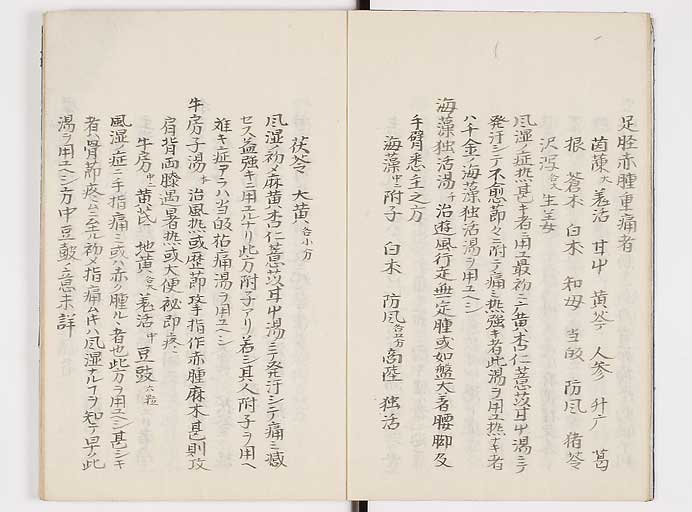 足脛赤腫重痛者
茵蔯 羌活 甘艸 黄芩 人参 升广 葛
根 蒼朮 白朮 知母 当皈 防風 猪苓
沢瀉 生姜
風湿ノ症熱甚キ者ニ用ユ最初ニ广黄杏仁薏苡甘艸湯ニテ
発汗シテ不愈節々ニ附テ痛ミ熱強キ者此湯ヲ用ユ熱ナキ者
ハ千金ノ海藻独活湯ヲ用ユヘシ
海藻独活湯 治遊風行走無定腫或如盤大者腰脚及
手臂悉主之方
海藻 附子 白朮 防風 商陸 独活
茯苓 大黄
風湿ノ初メ麻黄杏仁薏苡甘艸湯ニテ発汗シテ痛ミ减
セス益強キニ用ユルナリ此方附子アリ若シ其人附子ヲ用ヘ
難キ症アラハ当皈拈痛湯ヲ用ユヘシ
牛房子湯 治風熱或歴節攻手指作赤腫麻木甚則攻
肩背両膝遇暑熱或大便秘即疼
牛房 黄芪 地黄 羌活 豆豉 六粒
風湿ノ症ニ手指痛ミ或ハ赤ク腫ル者也此方ヲ用ユヘシ甚シキ
者ハ骨節疼ムニ至ル初メ指痛ムトキハ風湿ナルヿヲ知テ早ク此
湯ヲ用ユヘシ方中豆豉ノ意未詳